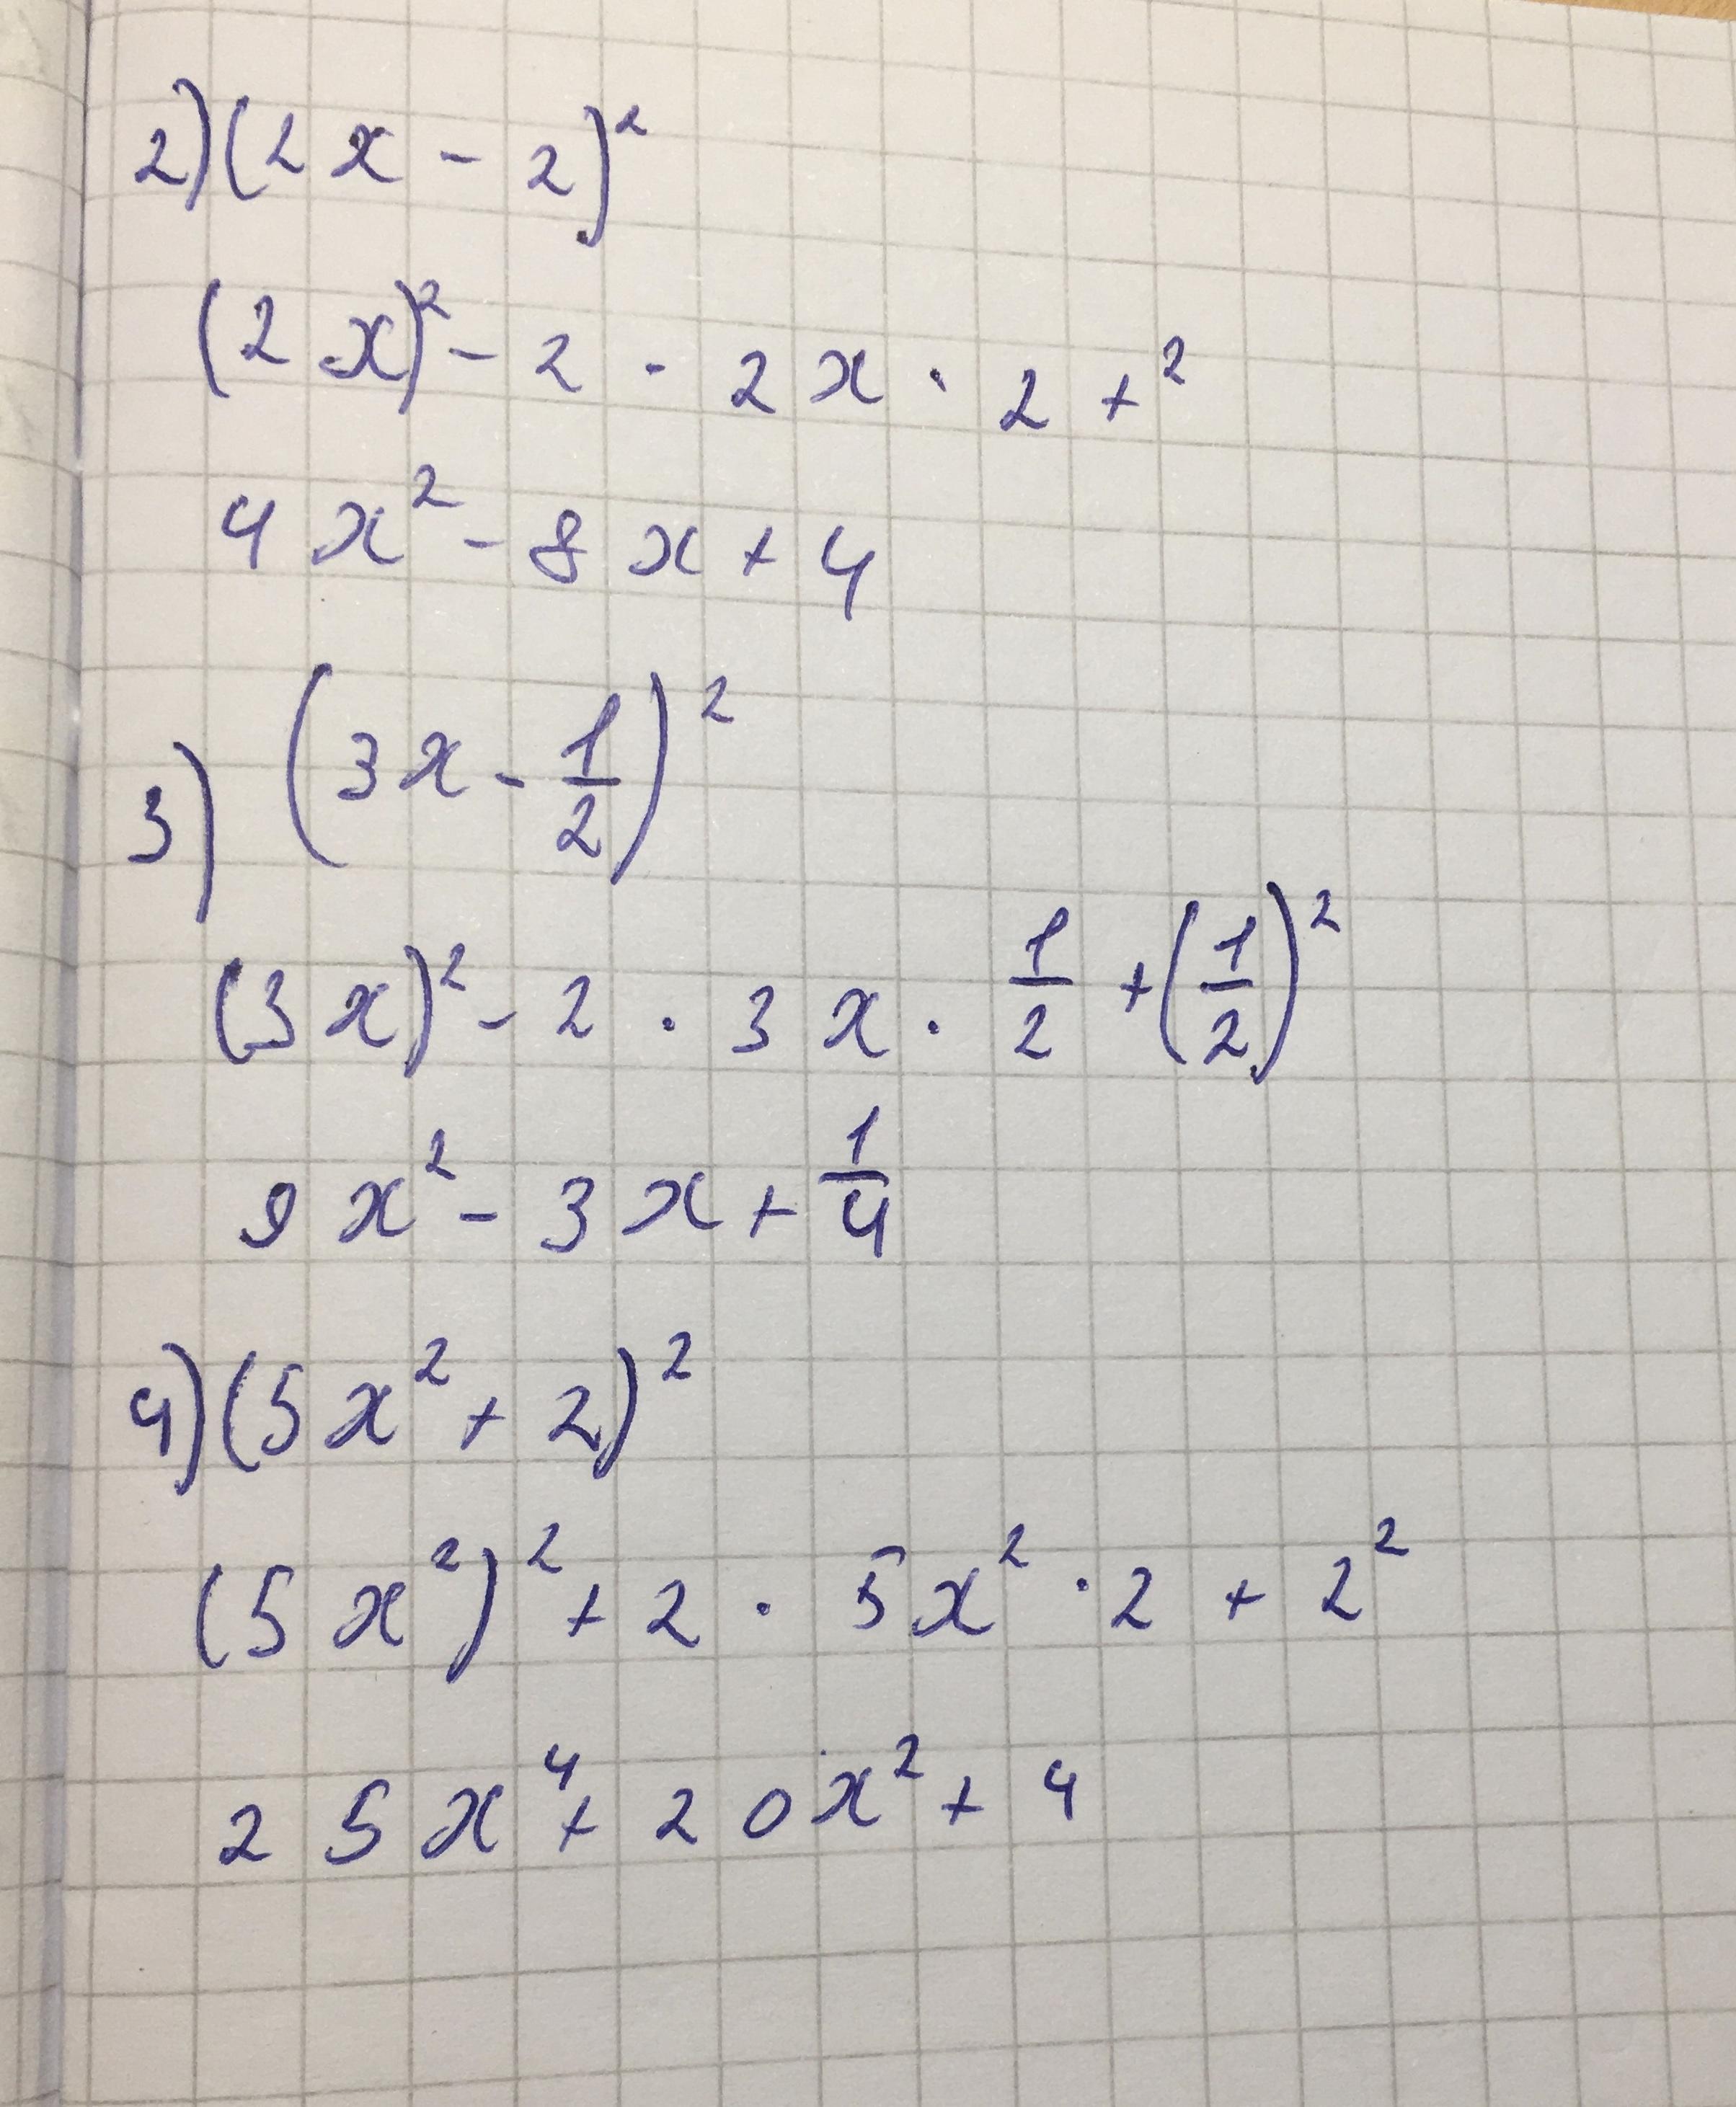 2) (2x - 2)²
(2x)² - 2 · 2x · 2 + ²
4x² - 8x + 4
3) (3x - 1/2)²
(3x)² - 2 · 3x · 1/2 + (1/2)²
9x² - 3x + 1/4
4) (5x² + 2)²
(5x²)² + 2 · 5x² · 2 + 2²
25x⁴ + 20x² + 4